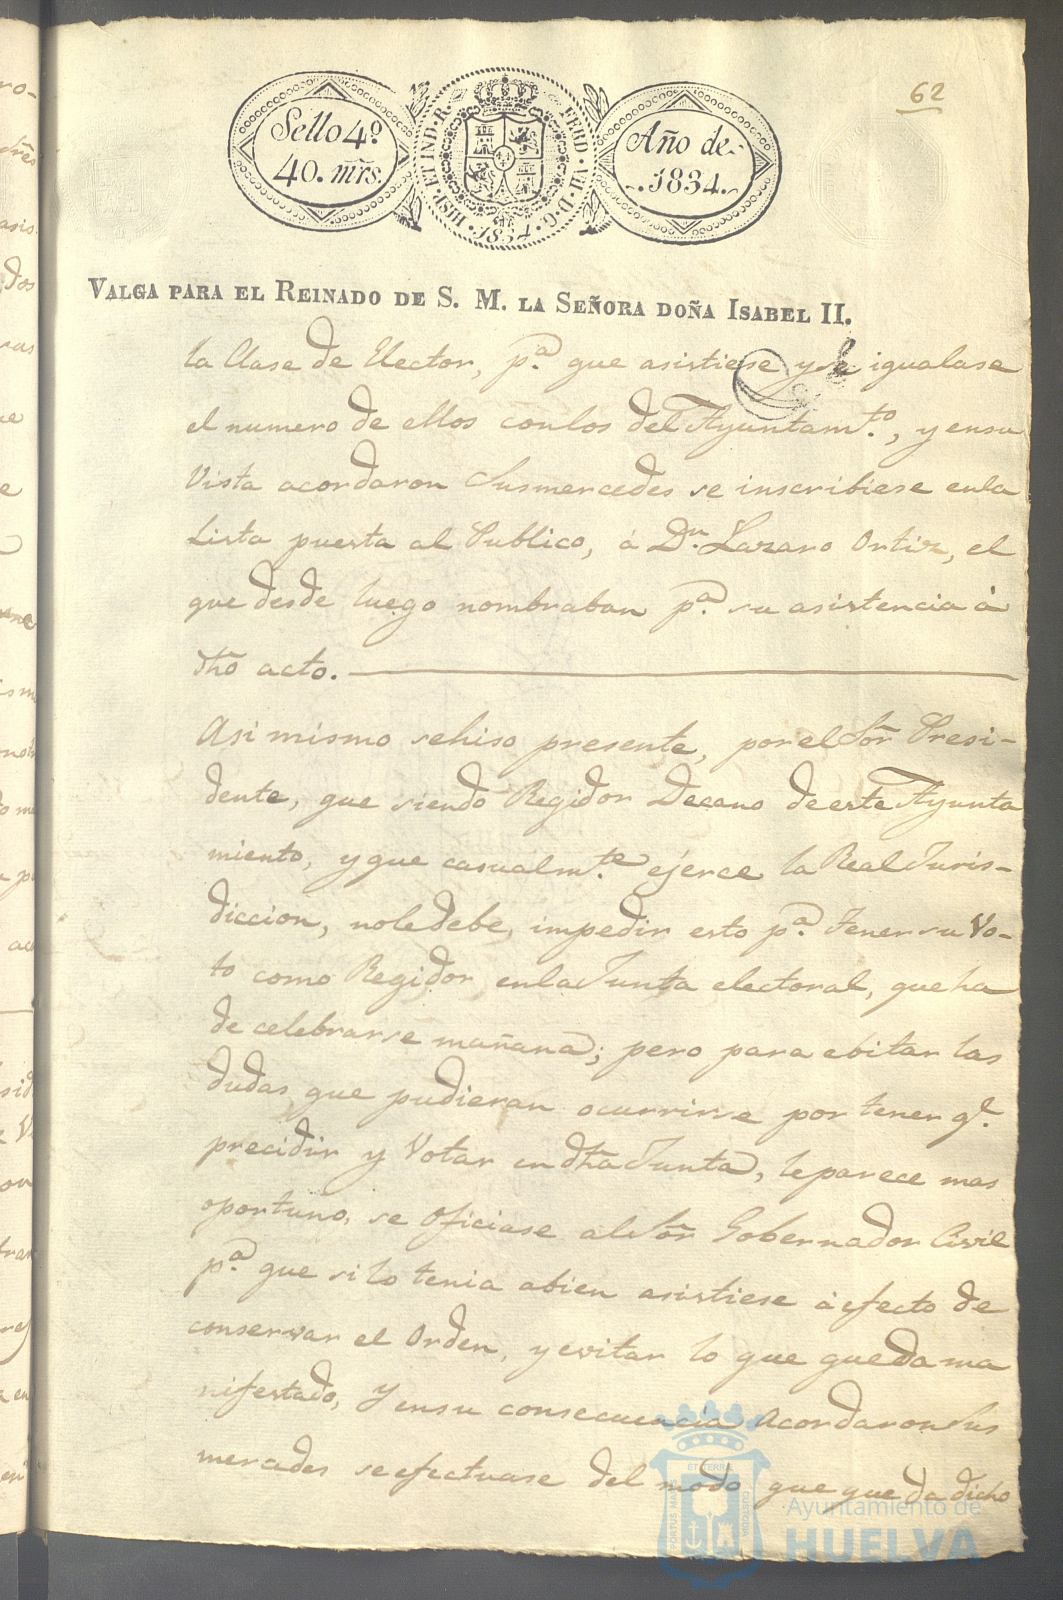 62
Sello 4º
40. mrs.
HISP. ET IND. R. FERD. VII. D. G.
1834.
Año de
1834.
VALGA PARA EL REINADO DE S. M. LA SEÑORA DOÑA ISABEL II.
la Clase de Elector, p.ª que asistiese y se igualase
el numero de ellos conlos del Ayuntam.to, y ensu
Vista acordaron Susmercedes se inscribiese enla
Lista puesta al Publico, á D.n Lazaro Ortiz, el
que desde luego nombraban p.ª su asistencia á
dho acto.
Asi mismo sehiso presente, porel Sor Presi-
dente, que siendo Regidor Decano deeste Ayunta
miento, y que casualm.te ejerce la Real Juris-
diccion, nole debe, impedir esto p.ª tener su Vo-
to como Regidor enla Junta electoral, que ha
de celebrarse mañana; pero para ebitar las
dudas que pudieran ocurrirse por tener q.e
precidir y Votar en dha Junta, le parece mas
oportuno, se oficiase al Sor Gobernador Civil
p.ª que silo tenia abien asistiese á efecto de
conservar el Orden, y evitar lo que queda ma
nifestado, y ensu consecuencia Acordaron Sus
mercedes se efectuase del modo que queda dicho
PORTUS MARIS
ET TERRÆ
CUSTODIA
Ayuntamiento de
HUELVA